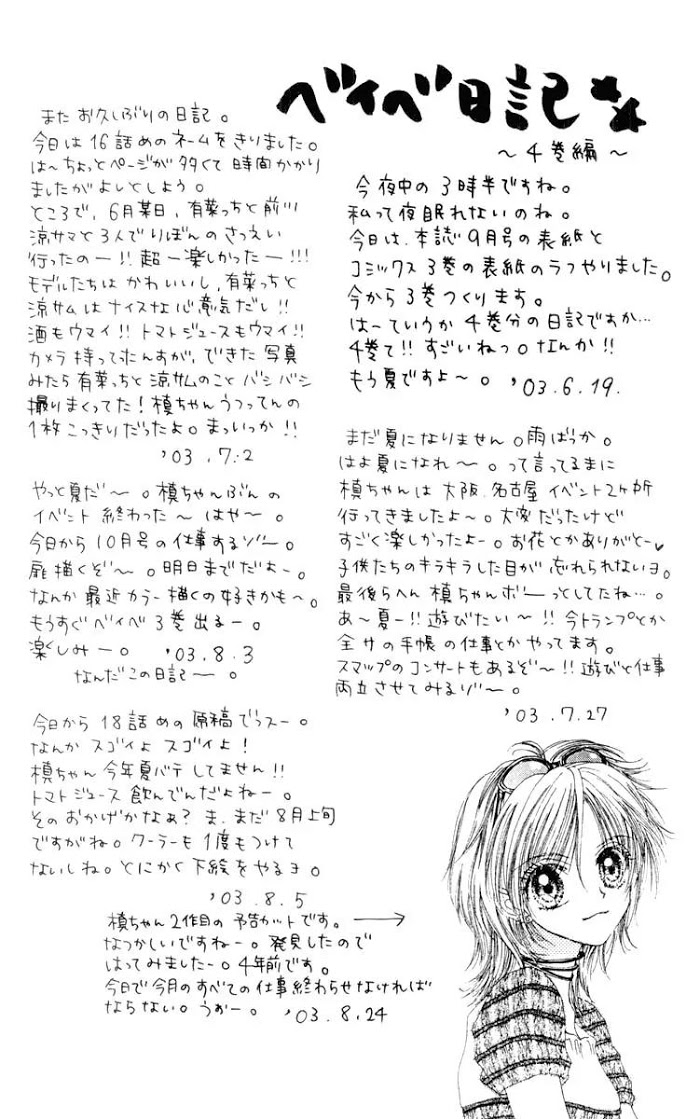 ベイベ日記
〜4巻編〜
今夜中の3時半ですね。
私って夜眠れないのね。
今日は、本誌9月号の表紙と
コミックス3巻の表紙のラフやりました。
今から3巻つくります。
はーていうか4巻分の日記ですか…
4巻て!!すごいねっ。なんか!!
もう夏ですよ〜。'03.6.19.
まだ夏になりません。雨ばっか。
はよ夏になれ〜。って言ってるまに
槙ちゃんは大阪、名古屋イベント2ヶ所
行ってきましたよ〜。大変だったけど
すごく楽しかったよー。お花とかありがとー♥
子供たちのキラキラした目が忘れられないヨ。
最後らへん槙ちゃんボーっとしてたね…。
あ〜夏ー!!遊びたい〜!!今トランプとか
全サの手帳の仕事とかやってます。
スマップのコンサートもあるぞ〜!!遊びと仕事
両立させてみるゾ〜。
'03.7.27
またお久しぶりの日記。
今日は16話めのネームをきりました。
は〜ちょっとページが多くて時間かかり
ましたがよしとしよう。
ところで、6月某日、有菜っちと前川
涼サマと3人でりぼんのさつえい
行ったのー!!超ー楽しかったー!!!
モデルたちはかわいいし、有菜っちと
涼サムはナイスな心意気だし!!
酒もウマイ!!トマトジュースもウマイ!!
カメラ持ってたんすが、できた写真
みたら有菜っちと涼サムのことバシバシ
撮りまくってた!槙ちゃんうつってんの
1枚こっきりだったよ。まっいっか!!
'03.7.2
やっと夏だ〜。槙ちゃんぶんの
イベント終わった〜はや〜。
今日から10月号の仕事するゾ〜。
扉描くぞ〜。明日までだよー。
なんか最近カラー描くの好きかも〜。
もうすぐベイベ3巻出るー。
楽しみー。'03.8.3
なんだこの日記ー。
今日から18話めの原稿でっスー。
なんかスゴイよスゴイよ!
槙ちゃん今年夏バテしてません!!
トマトジュース飲んでんだよねー。
そのおかげかなぁ?ま、まだ8月上旬
ですがね。クーラーも1度もつけて
ないしね。とにかく下絵をやるヨ。
'03.8.5
槙ちゃん2作目の予告カットです。→
なつかしいですねー。発見したので
はってみましたー。4年前です。
今日で今月のすべての仕事終わらせなければ
ならない。うおー。'03.8.24